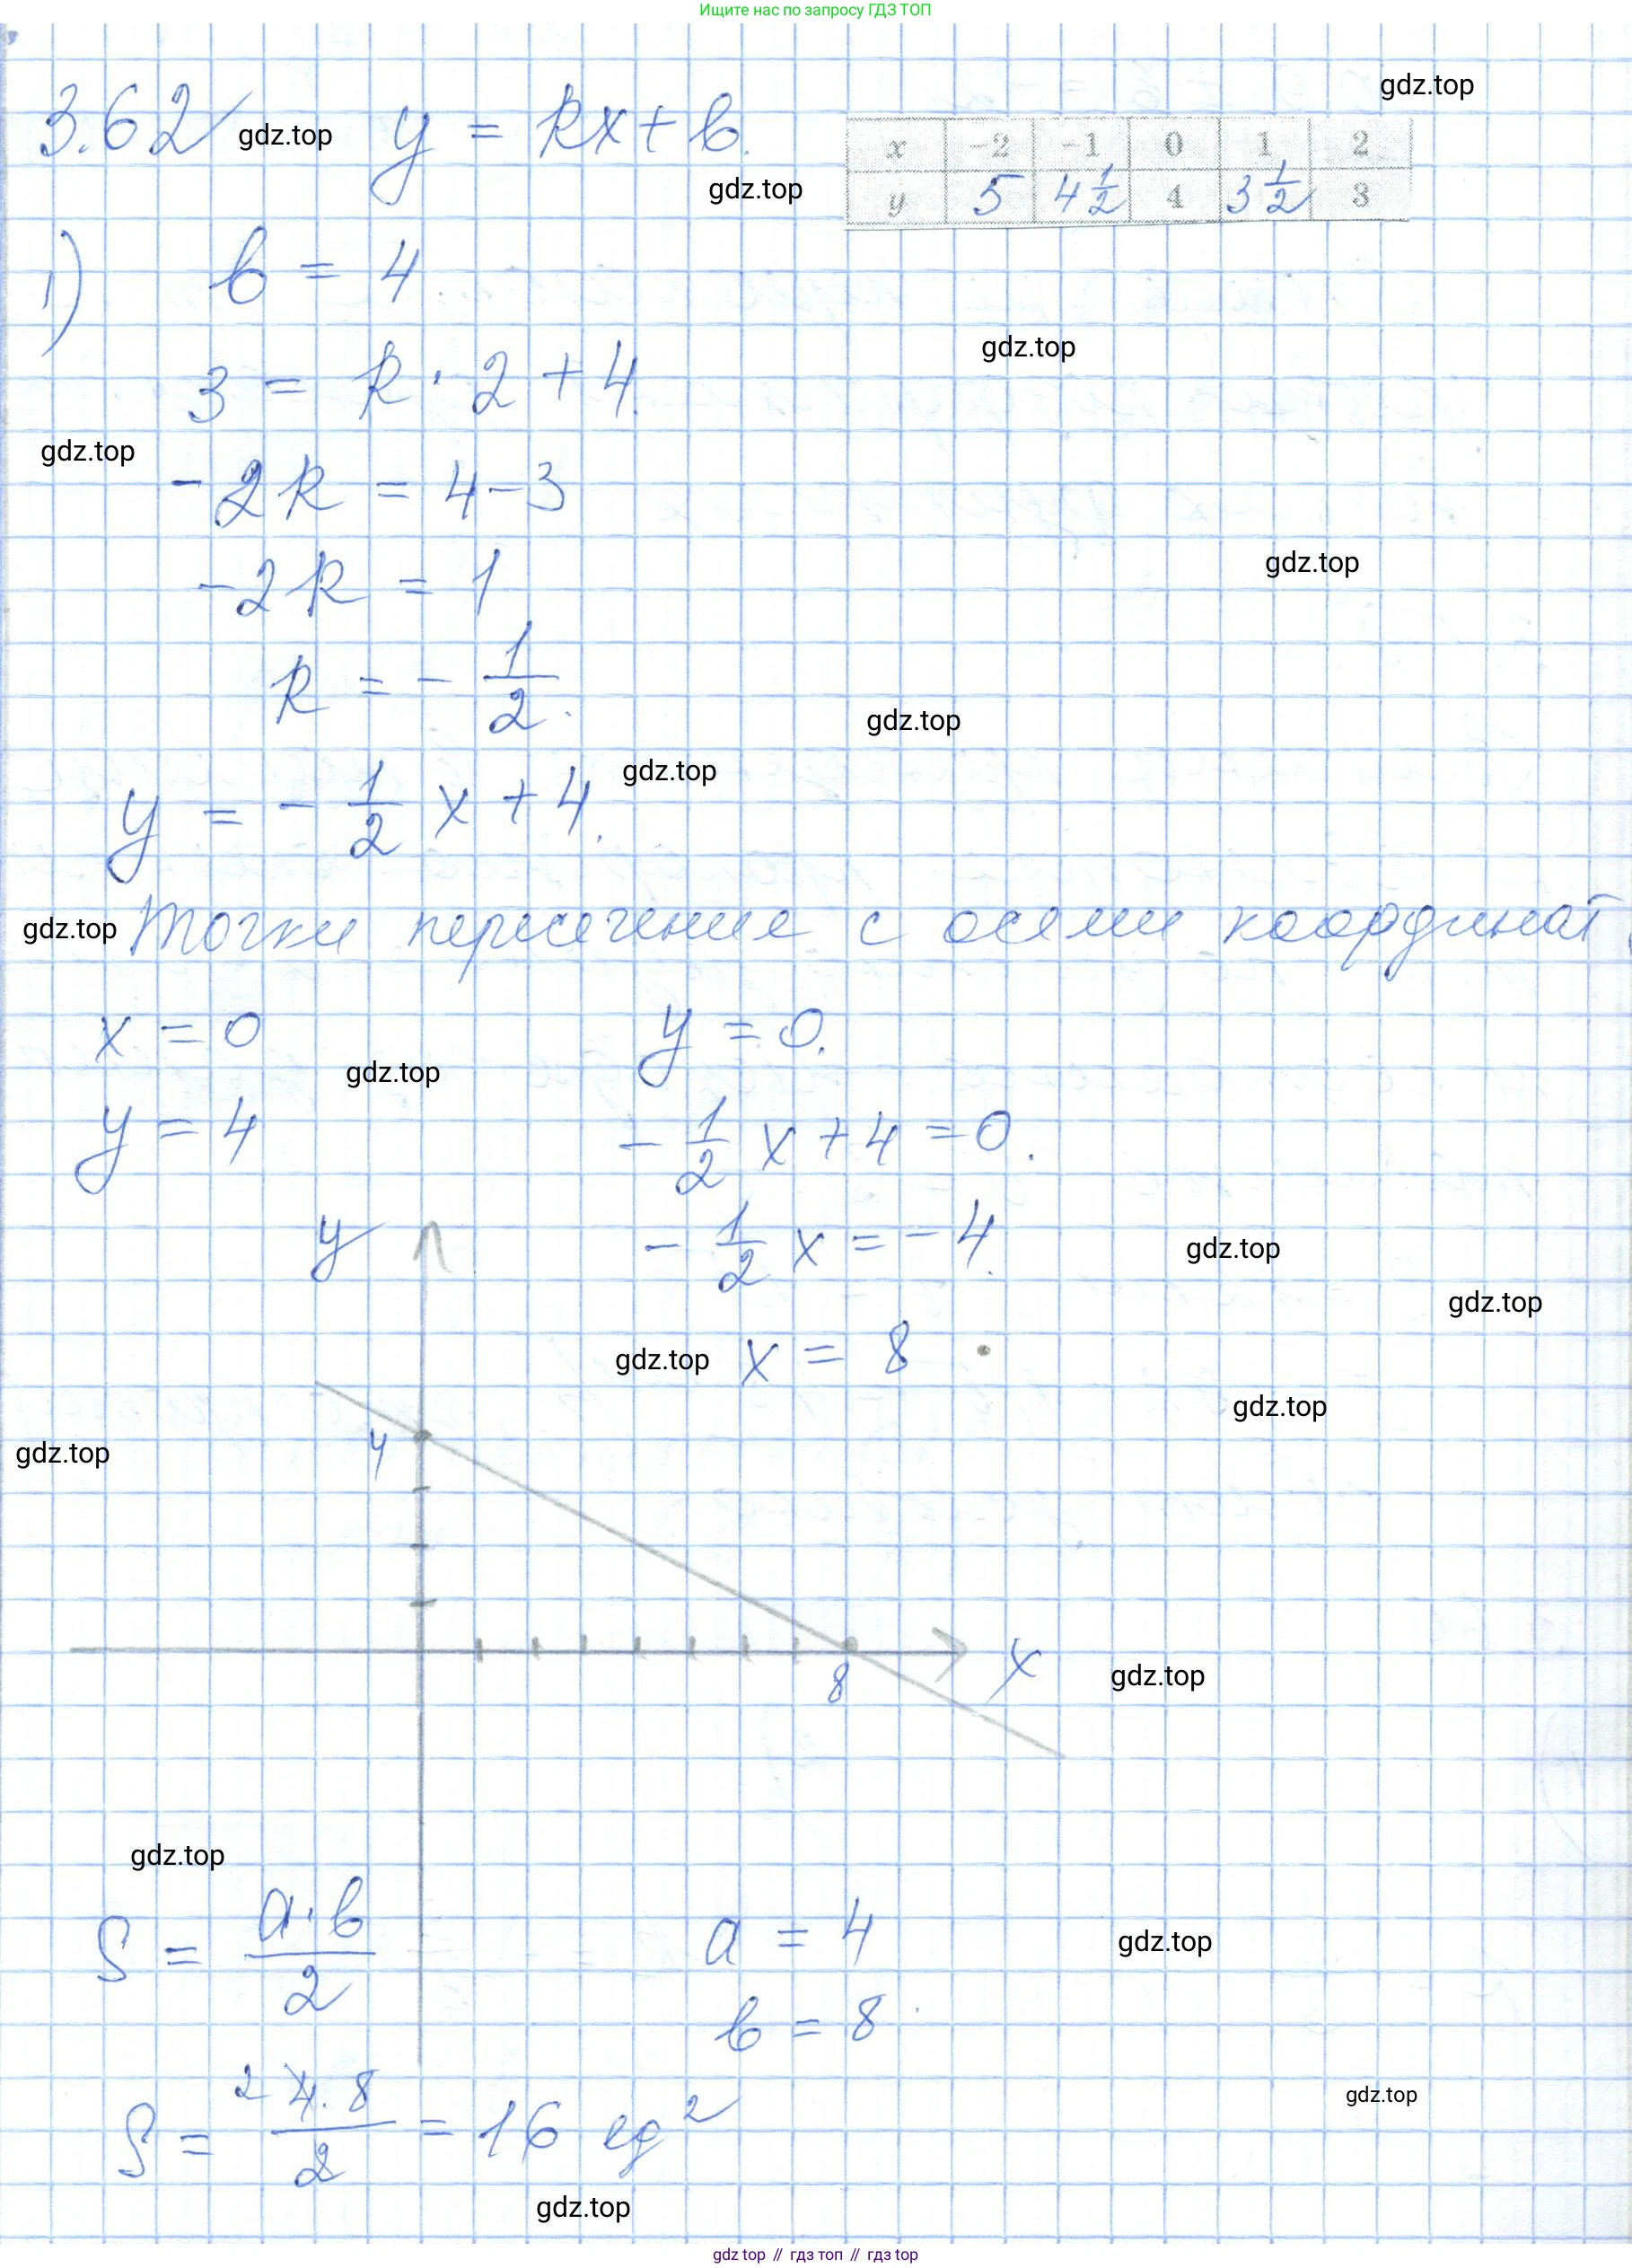 Ищите нас по запросу ГДЗ ТОП
gdz.top
3.62 gdz.top y = kx + b.
gdz.top
x -2 -1 0 1 2
y 5 4 1/2 4 3 1/2 3
1) b = 4
gdz.top
3 = k · 2 + 4.
gdz.top
-2k = 4-3
gdz.top
-2k = 1
k = - 1/2.
gdz.top
gdz.top
y = - 1/2 x + 4.
gdz.top Точки пересечение с осями координат
x = 0 y = 0.
gdz.top
y = 4 - 1/2 x + 4 = 0.
y - 1/2 x = - 4.
gdz.top
gdz.top
gdz.top x = 8
gdz.top
4
gdz.top
8
x
gdz.top
gdz.top
S = a · b / 2 a = 4
gdz.top
b = 8
gdz.top
S = 2 4 · 8 / 2 = 16 ед²
gdz.top
gdz top // гдз топ // гдз top